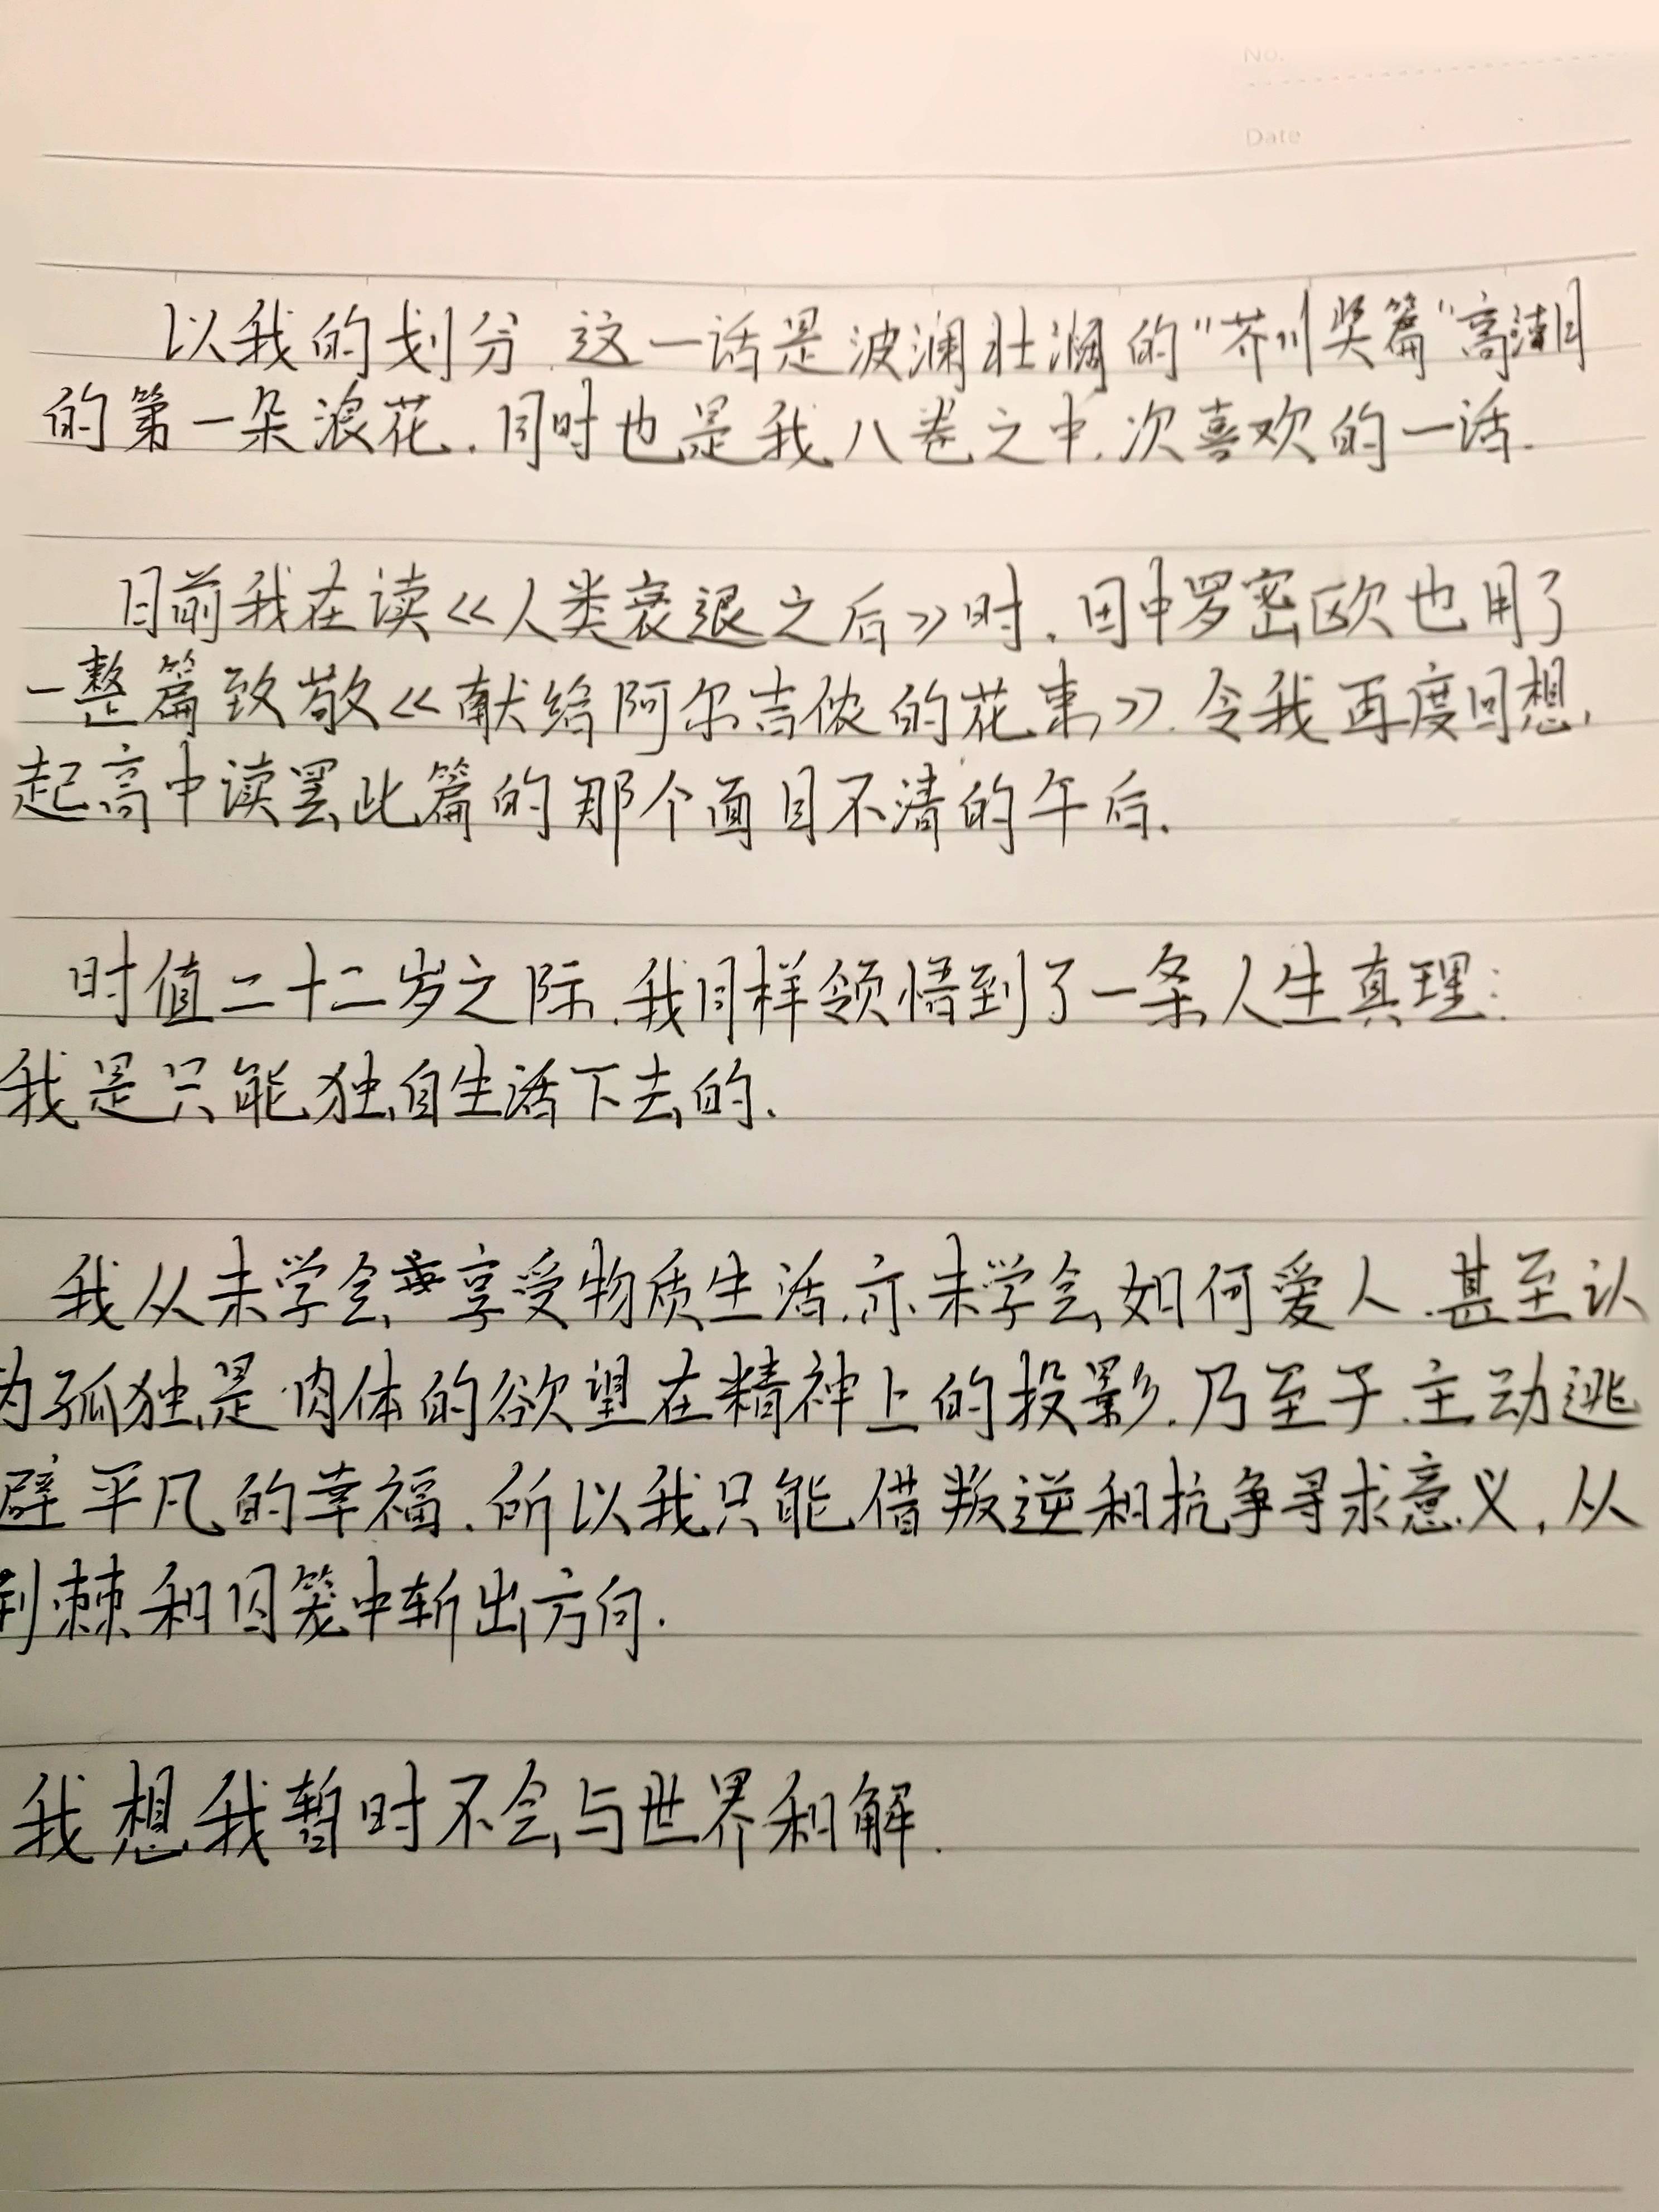 No.
Date
以我的划分.这一话是波澜壮澜的"芥川奖篇"高潮
的第一朵浪花.同时也是我八卷之中.次喜欢的一话.
目前我在读《人类衰退之后》时.田中罗密欧也用了
一整篇致敬《献给阿尔吉侬的花束》.令我再度回想
起高中读罢此篇的那个面目不清的午后.
时值二十二岁之际.我同样领悟到了一条人生真理:
我是只能独自生活下去的.
我从未学会享受物质生活.亦未学会如何爱人.甚至认
为孤独是肉体的欲望在精神上的投影.乃至于主动逃
避平凡的幸福.所以我只能借叛逆和抗争寻求意义,从
荆棘和囚笼中斩出方向.
我想我暂时不会与世界和解.